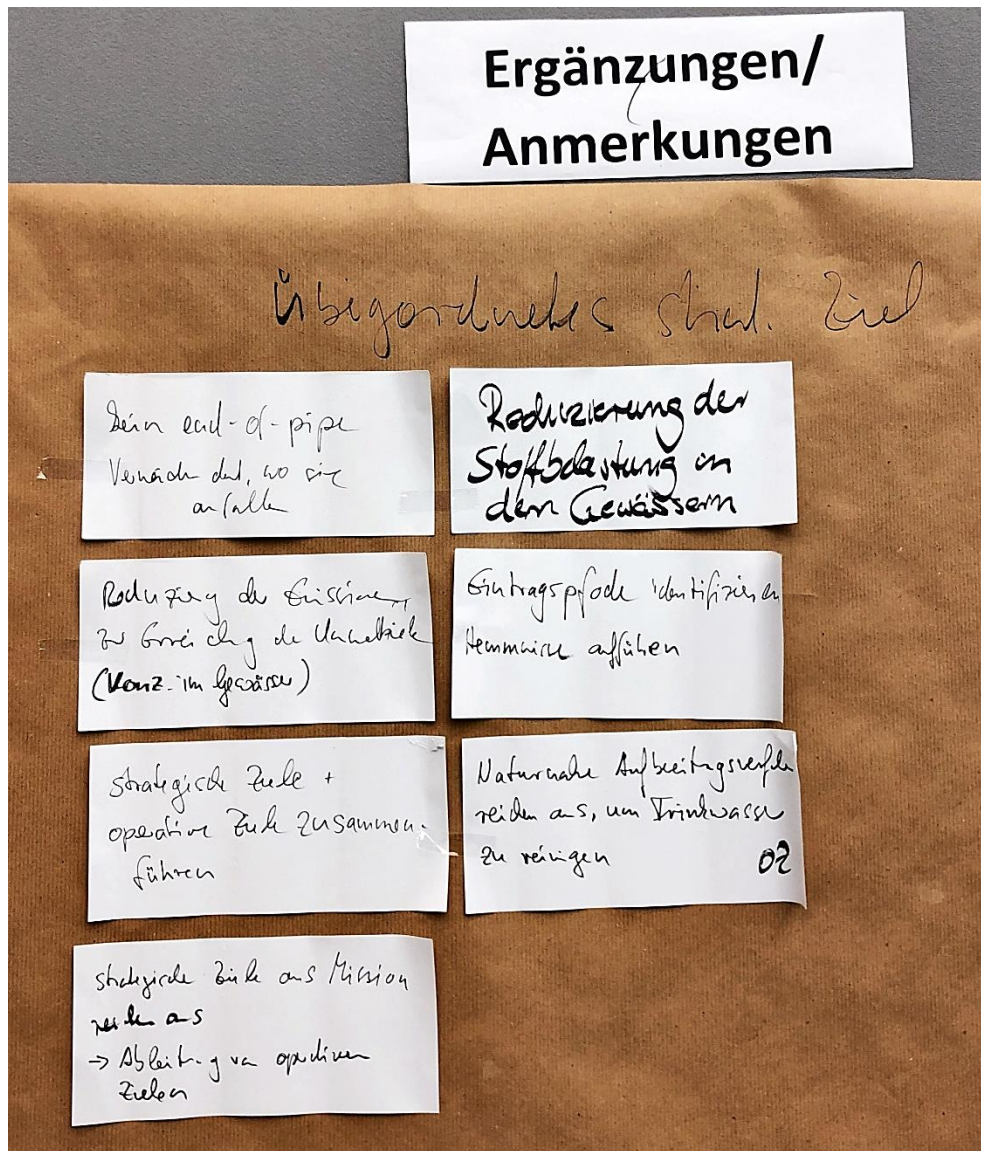 Ergänzungen/
Anmerkungen
Übergordnetes strat. Ziel
Kein end-of-pipe
Vermeiden dort, wo sie
anfallen
Reduzierung der
Stoffbelastung in
den Gewässern
Reduzierung der Emissionen
zur Erreichung der Umweltziele
(Konz. im Gewässer)
Eintragspfade identifizieren
Hemmnisse aufführen
strategische Ziele +
operative Ziele zusammen-
führen
Naturnahe Aufbereitungsverfahren
reichen aus, um Trinkwasser
zu reinigen
strategische Ziele aus Mission
reichen aus
→ Ableitung von operativen
Zielen